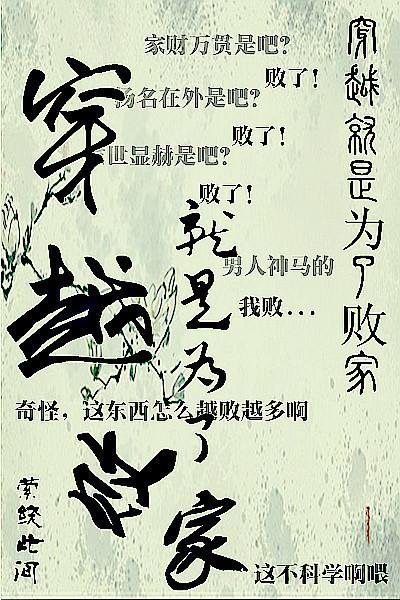 穿越就是为了败家
家财万贯是吧?
败了!
扬名在外是吧?
败了!
世显赫是吧?
败了!
男人神马的
我败...
奇怪，这东西怎么越败越多啊
这不科学啊喂
穿越
就是为了
败家
萦绕此间